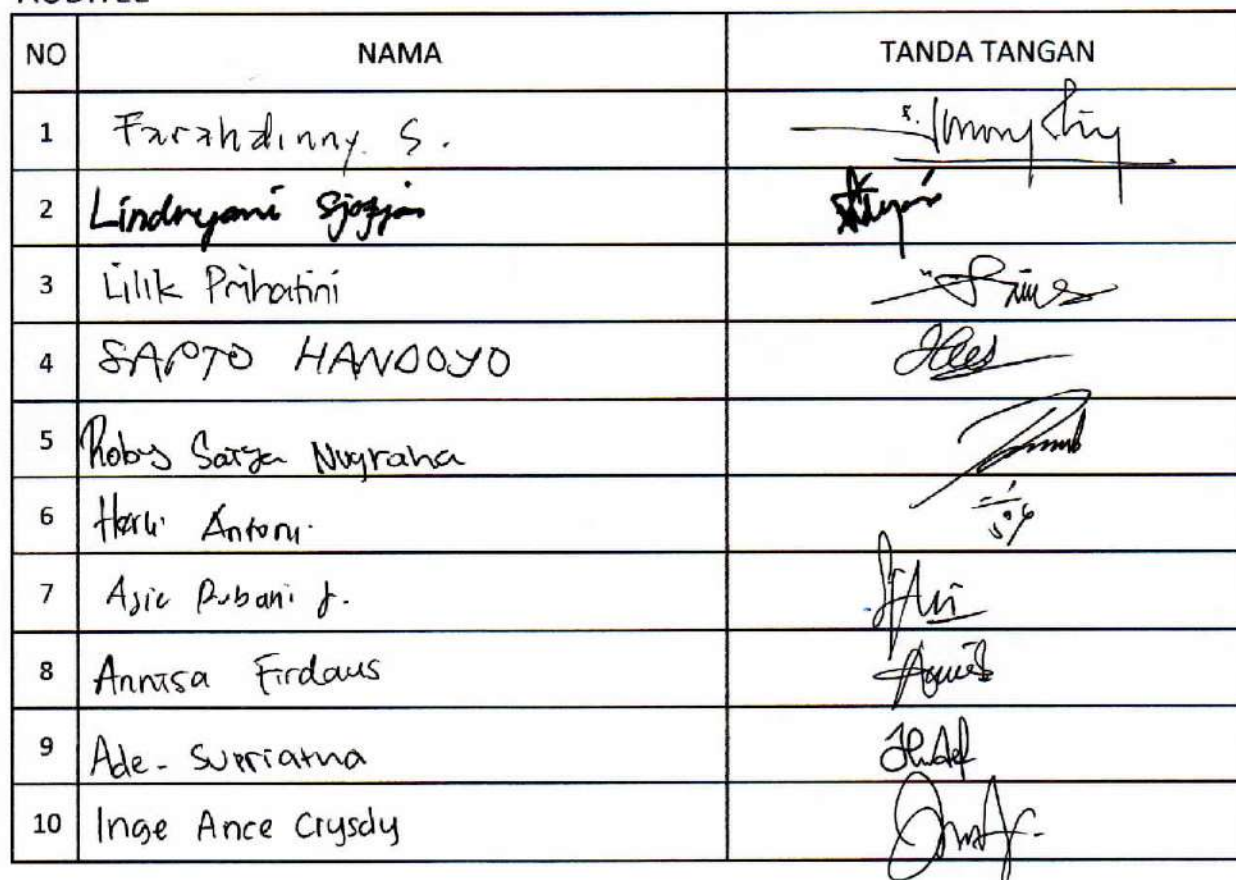 AUDITEE
NO NAMA TANDA TANGAN
1 Farahdinny S.
2 Lindryani Sjofjan
3 Lilik Prihatini
4 SAPTO HANDOYO
5 Roby Satya Nugraha
6 Herli Antoni
7 Asic Rubani J.
8 Annisa Firdaus
9 Ade - Supriatna
10 Inge Ance Crysdy